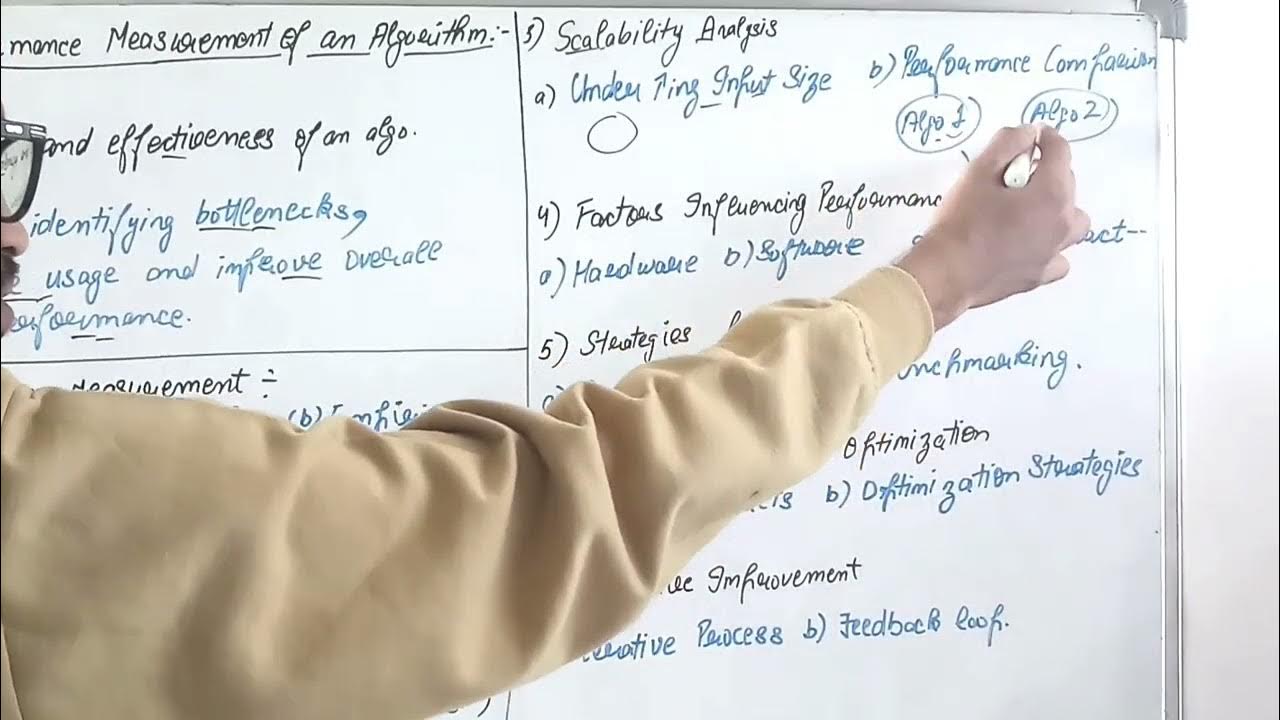 mance Measurement of an Algorithm:-
and effectiveness of an algo.
identifying bottlenecks,
usage and improve overall
performance.
Measurement ÷
(b) Empiri
3) Scalability Analysis
a) Under Input Size b) Performance Comparison
Algo 1 Algo 2
4) Factors Influencing Performanc
a) Hardware b) Software act--
5) Strategies
nchmarking.
Optimization
is b) Optimization Strategies
ce Improvement
erative Process b) Feedback loop.